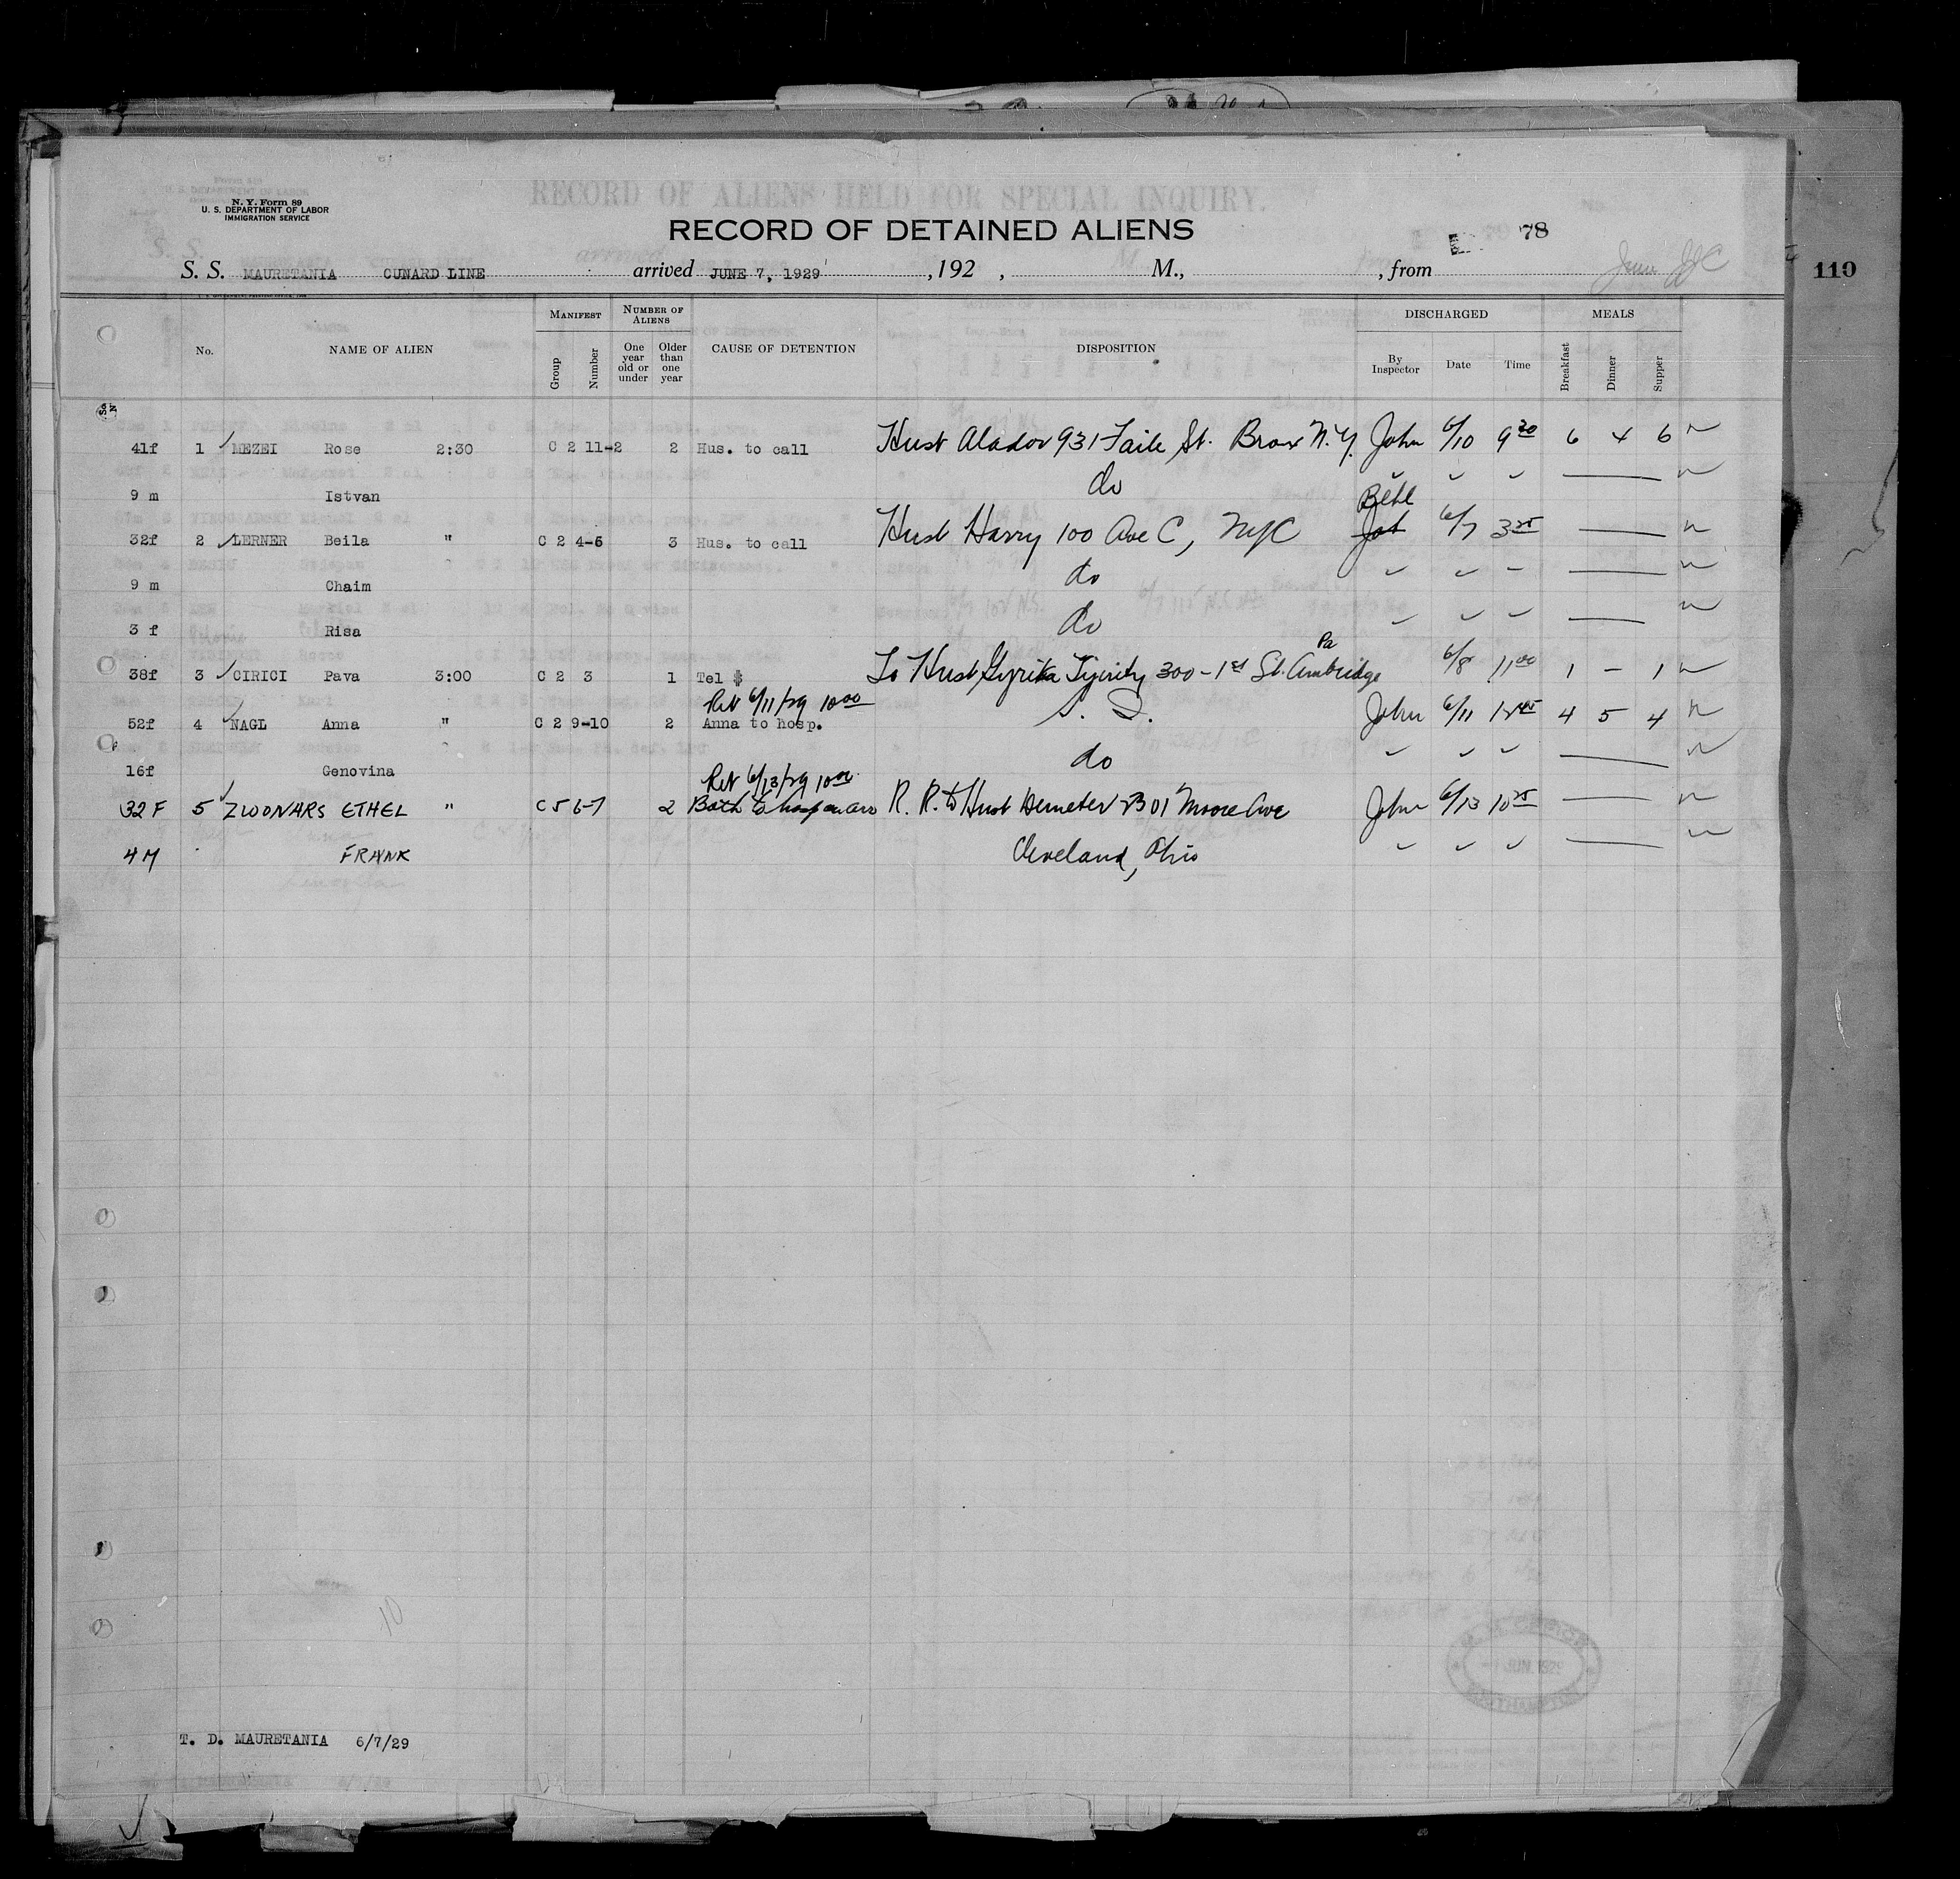 N. Y. Form 89
U. S. DEPARTMENT OF LABOR
IMMIGRATION SERVICE
RECORD OF ALIENS HELD FOR SPECIAL INQUIRY.
RECORD OF DETAINED ALIENS
78
S. S. MAURETANIA CUNARD LINE arrived JUNE 7, 1929 , 192 , M., , from
110
No. NAME OF ALIEN MANIFEST Group Number NUMBER OF ALIENS One year old or under Older than one year CAUSE OF DETENTION DISPOSITION DISCHARGED By Inspector Date Time MEALS Breakfast Dinner Supper
41f 1 MEZEI Rose 2:30 C 2 11-2 2 Hus. to call Husb Alador 931 Faile St. Bronx N.Y. John 6/10 9 30 6 4 6
9 m Istvan do
Behl
32f 2 LERNER Beila " C 2 4-6 3 Hus. to call Husb Harry 100 Ave C, NYC Joh 6/7 3 25
9 m Chaim do
3 f Risa do
Pa
38f 3 CIRICI Pava 3:00 C 2 3 1 Tel $ To Husb 300-1st St. Ambridge 6/8 11 00 1 - 1
Ret 6/11/29 10 00
52f 4 NAGL Anna " C 2 9-10 2 Anna to hosp. S. I. John 6/11 4 5 4
16f Genovina do
Ret 6/13/29 10 00
32 F 5 ZWONARS ETHEL " C 5 6-7 2 Both to hosp on arr R. R. to Husb Demeter 2301 Moore Ave John 6/13 10 25
4 M FRANK Cleveland, Ohio
10
T. D. MAURETANIA 6/7/29